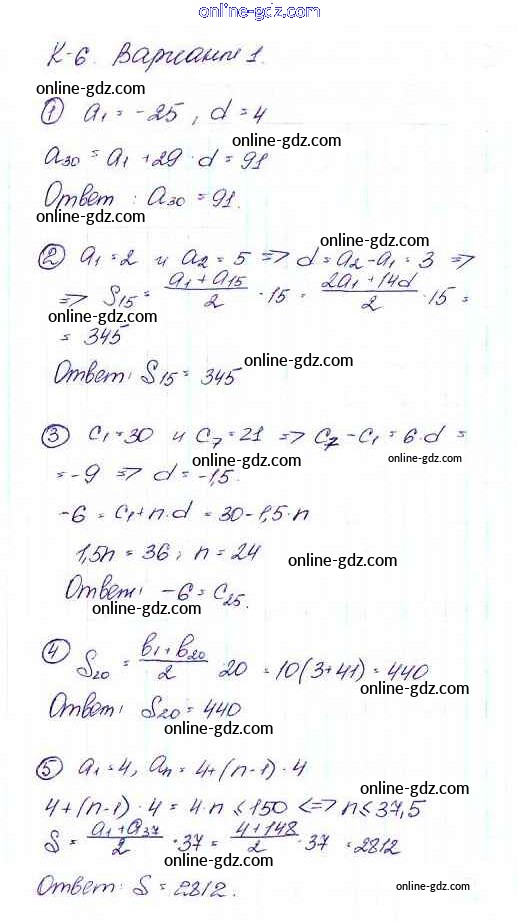 online-gdz.com
К-6. Вариант 1.
online-gdz.com
① a₁ = -25, d = 4
online-gdz.com
a₃₀ = a₁ + 29 · d = 91
online-gdz.com
Ответ: a₃₀ = 91.
online-gdz.com
online-gdz.com
② a₁ = 2 и a₂ = 5 => d = a₂ - a₁ = 3 =>
=> S₁₅ = (a₁ + a₁₅)/2 · 15 = (2a₁ + 14d)/2 · 15 =
online-gdz.com
online-gdz.com
= 345
online-gdz.com
Ответ: S₁₅ = 345
③ c₁ = 30 и c₇ = 21 => c₇ - c₁ = 6 · d =
online-gdz.com
online-gdz.com
= -9 => d = -1,5.
-6 = c₁ + n · d = 30 - 1,5 · n
1,5n = 36; n = 24
online-gdz.com
Ответ: -6 = c₂₅.
online-gdz.com
④ S₂₀ = (b₁ + b₂₀)/2 · 20 = 10(3 + 41) = 440
online-gdz.com
Ответ: S₂₀ = 440
online-gdz.com
⑤ a₁ = 4, aₙ = 4 + (n-1) · 4
online-gdz.com
4 + (n-1) · 4 = 4 · n ≤ 150 <=> n ≤ 37,5
S = (a₁ + a₃₇)/2 · 37 = (4 + 148)/2 · 37 = 2812
online-gdz.com
Ответ: S = 2812.
online-gdz.com
online-gdz.com